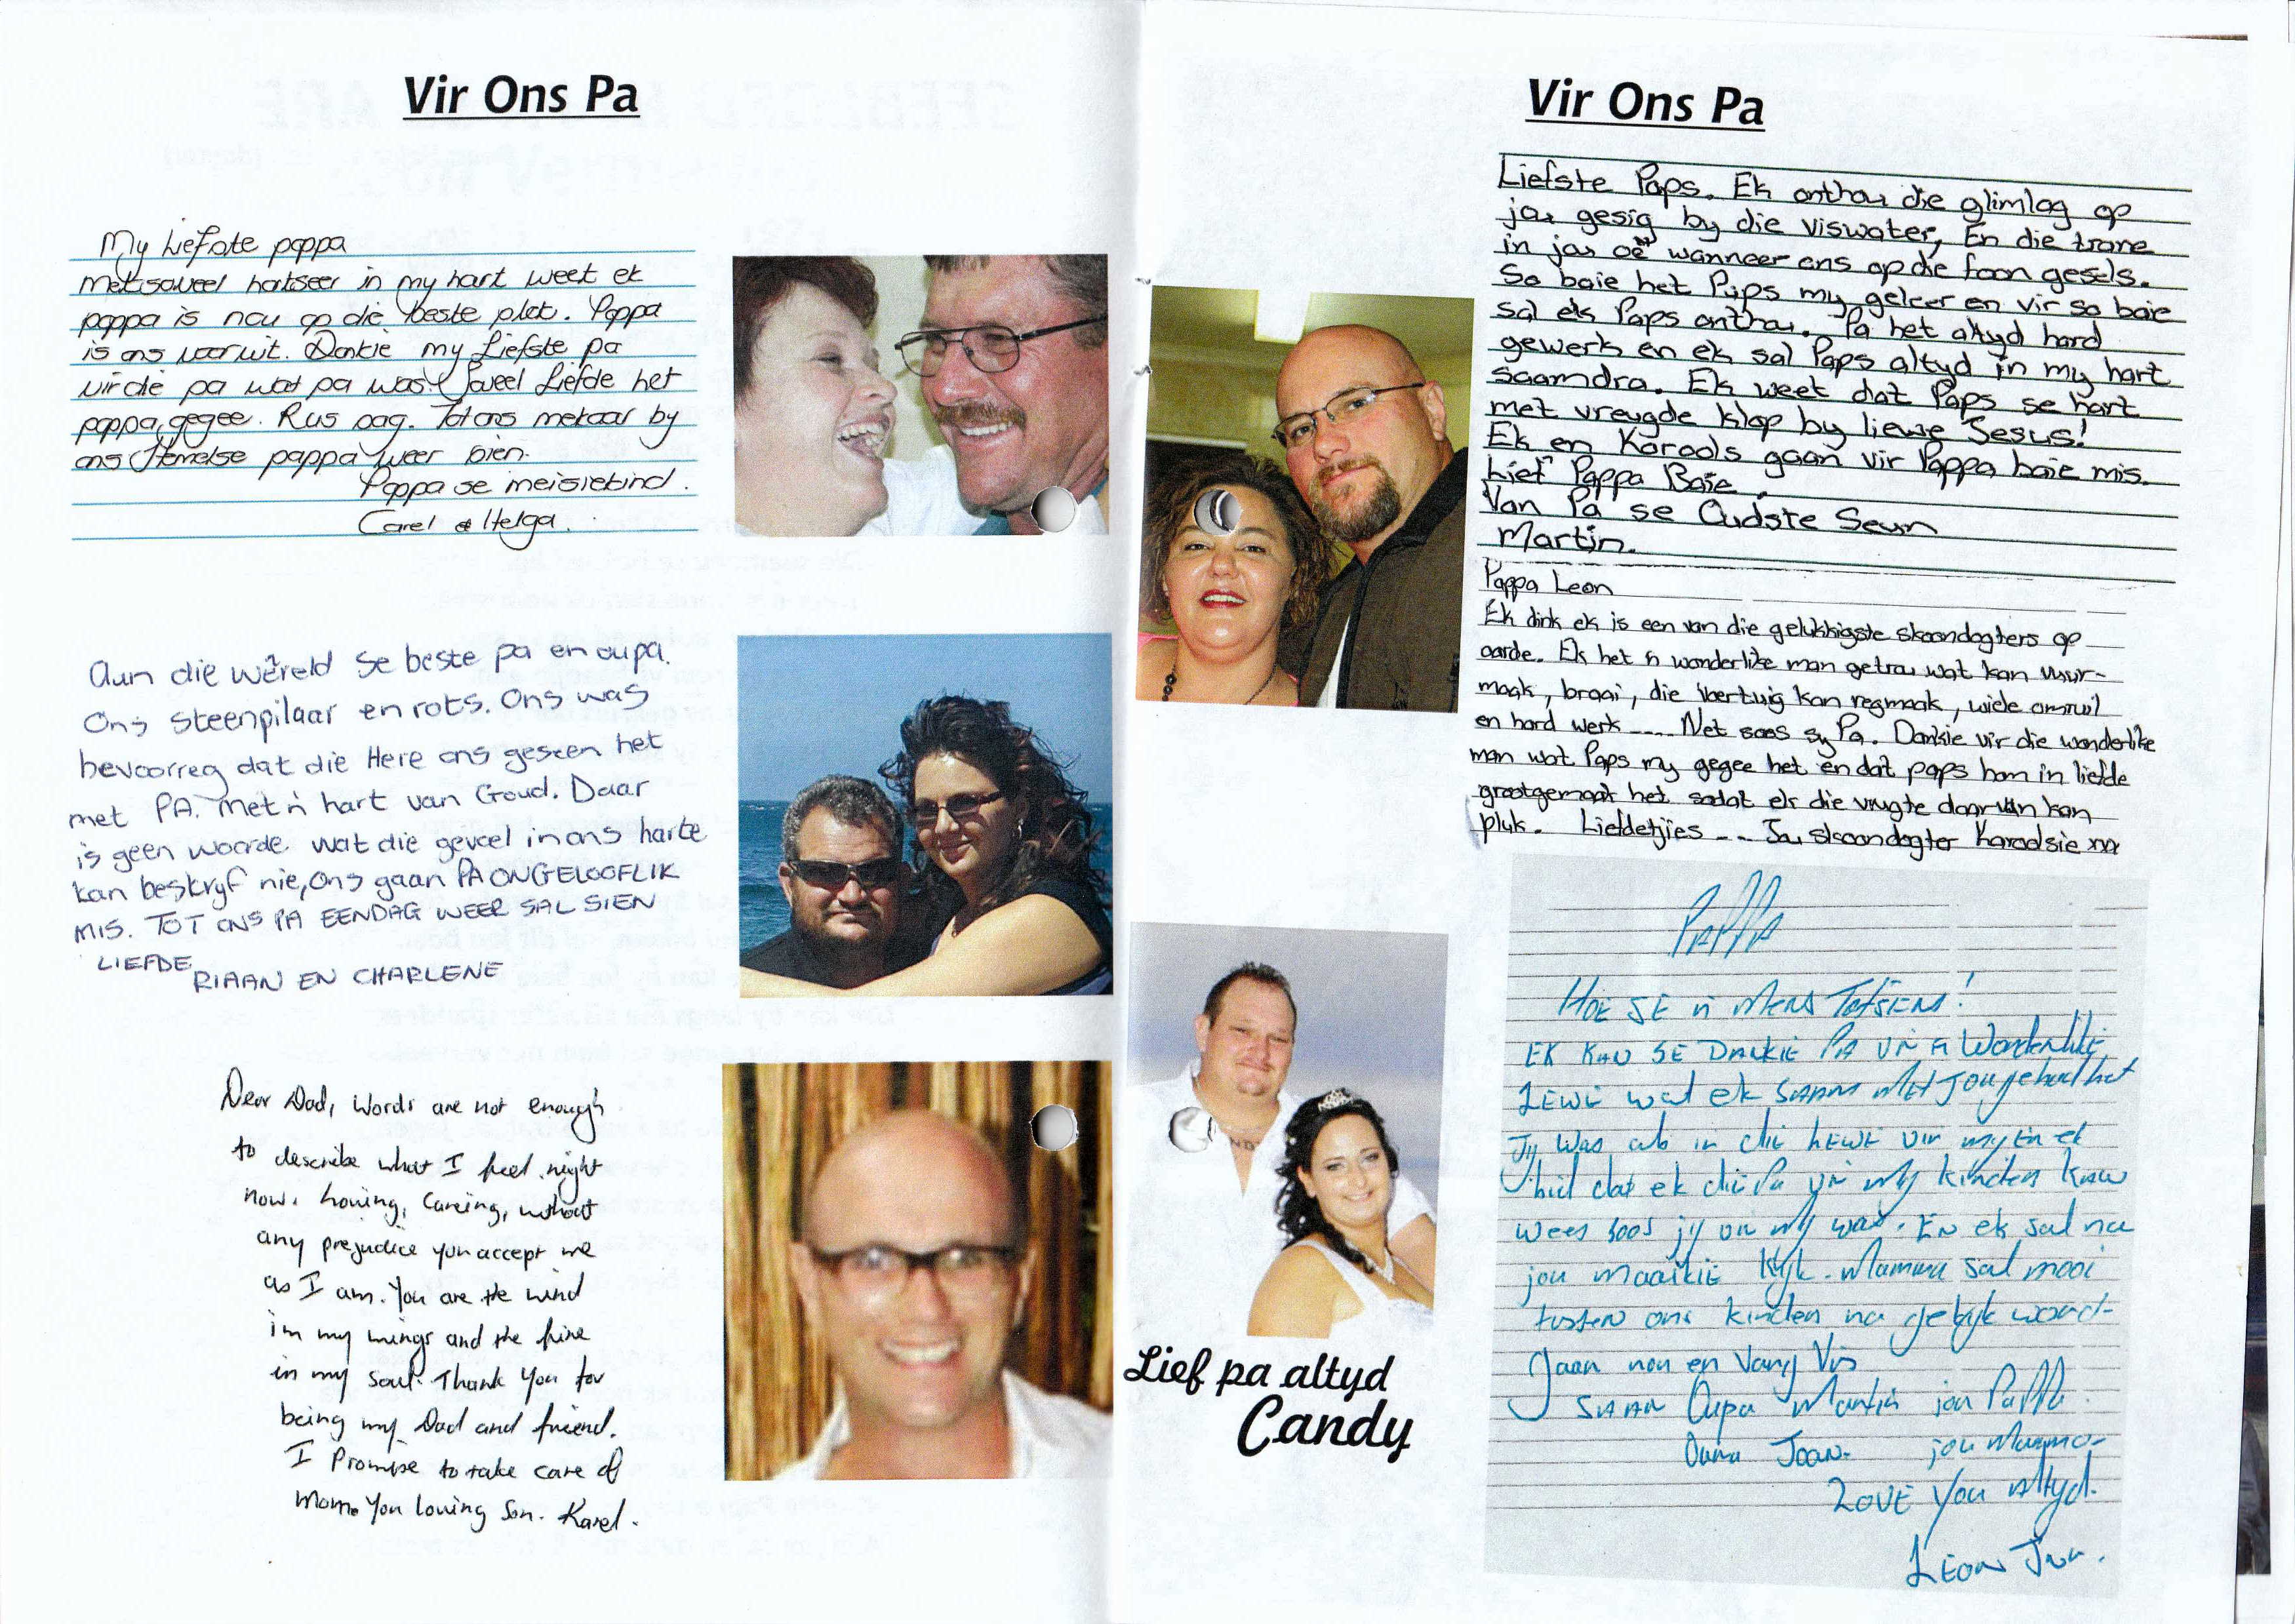 Vir Ons Pa
My Liefste pappa
Met soveel hartseer in my hart weet ek
pappa is nou op die beste plek. Pappa
is ons vooruit. Dankie my Liefste pa
vir die pa wat pa was. Soveel Liefde het
pappa gegee. Rus sag. Tot ons mekaar by
ons Hemelse pappa weer sien.
Pappa se meisiekind.
Carel & Helga.
Aan die wêreld se beste pa en oupa.
Ons steenpilaar en rots. Ons was
bevoorreg dat die Here ons geseen het
met PA. Met 'n hart van Goud. Daar
is geen woorde wat die gevoel in ons harte
kan beskryf nie, Ons gaan PA ONGELOOFLIK
MIS. TOT ONS PA EENDAG WEER SAL SIEN
LIEFDE
RIAAN EN CHARLENE
Dear Dad, Words are not enough
to describe what I feel right
now. Loving, Careing, without
any prejudice you accept me
as I am. You are the wind
in my wings and the fire
in my soul. Thank You for
being my Dad and friend.
I Promise to take care of
Mom. You loving Son. Karel.
Vir Ons Pa
Liefste Paps. Ek onthou die glimlag op
jou gesig by die viswater, En die trane
in jou oë wanneer ons op die foon gesels.
So baie het Paps my geleer en vir so baie
sal ek Paps onthou. Pa het altyd hard
gewerk en ek sal Paps altyd in my hart
saamdra. Ek weet dat Paps se hart
met vreugde klop by liewe Jesus!
Ek en Karools gaan vir Pappa baie mis.
Lief Pappa Baie.
Van Pa se Oudste Seun
Martin.
Pappa Leon
Ek dink ek is een van die gelukkigste skoondogters op
aarde. Ek het 'n wonderlike man getrou wat kan vuur-
maak, braai, die voertuig kan regmaak, wiele omruil
en hard werk .... Net soos sy Pa. Dankie vir die wonderlike
man wat Paps my gegee het en dat paps hom in liefde
grootgemaak het sodat ek die vrugte daarvan kan
pluk. Liefdetjies -- Jou skoondogter Karoolsie xx
Lief pa altyd
Candy
PAPPA
HOE SE 'n MENS TOTSIENS!
EK KAN SE DANKIE PA VIR 'n Wonderlike
LEWE wat ek SAAM MET Jou gehad het
Jy was als in die LEWE vir my En ek
bid dat ek die Pa vir my kinders kan
wees soos jy vir my was. EN ek sal na
jou maaikie kyk. Mamma sal mooi
tussen ons kinders na gekyk word-
Gaan nou en Vang Vis
SAAM Oupa Martin jou Pappa.
Ouma Joan. jou Mamma-
LOVE You Altyd.
LEON Jnr.